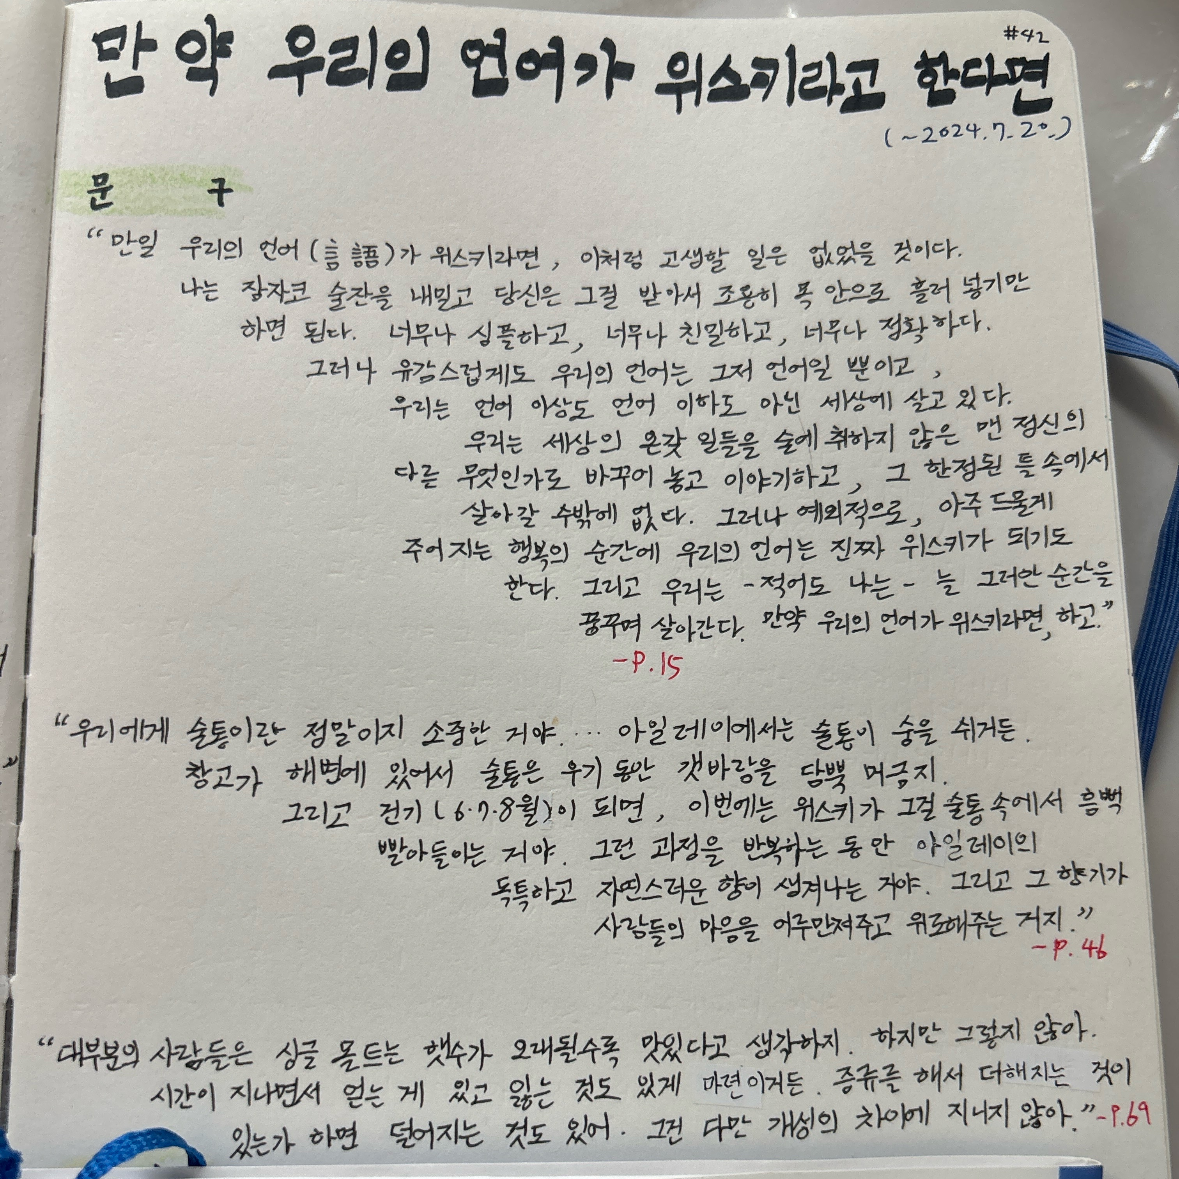 #42
만약 우리의 언어가 위스키라고 한다면
(~2024.7.20.)
문 구
“만일 우리의 언어(言語)가 위스키라면, 이처럼 고생할 일은 없었을 것이다.
나는 잠자코 술잔을 내밀고 당신은 그걸 받아서 조용히 목 안으로 흘려 넣기만
하면 된다. 너무나 심플하고, 너무나 친밀하고, 너무나 정확하다.
그러나 유감스럽게도 우리의 언어는 그저 언어일 뿐이고,
우리는 언어 이상도 언어 이하도 아닌 세상에 살고 있다.
우리는 세상의 온갖 일들을 술에 취하지 않은 맨 정신의
다른 무엇인가로 바꾸어 놓고 이야기하고, 그 한정된 틀 속에서
살아갈 수밖에 없다. 그러나 예외적으로, 아주 드물게
주어지는 행복의 순간에 우리의 언어는 진짜 위스키가 되기도
한다. 그리고 우리는 -적어도 나는- 늘 그러한 순간을
꿈꾸며 살아간다. 만약 우리의 언어가 위스키라면, 하고.”
-P.15
“우리에게 술통이란 정말이지 소중한 거야. … 아일레이에서는 술통이 숨을 쉬거든.
창고가 해변에 있어서 술통은 우기 동안 갯바람을 담뿍 머금지.
그리고 건기(6·7·8월)이 되면, 이번에는 위스키가 그걸 술통 속에서 흠뻑
빨아들이는 거야. 그런 과정을 반복하는 동안 아일레이의
독특하고 자연스러운 향이 생겨나는 거야. 그리고 그 향기가
사람들의 마음을 어루만져주고 위로해주는 거지.”
-P.46
“대부분의 사람들은 싱글 몰트는 햇수가 오래될수록 맛있다고 생각하지. 하지만 그렇지 않아.
시간이 지나면서 얻는 게 있고 잃는 것도 있게 마련이거든. 증류를 해서 더해지는 것이
있는가 하면 덜어지는 것도 있어. 그건 다만 개성의 차이에 지나지 않아.” -P.69